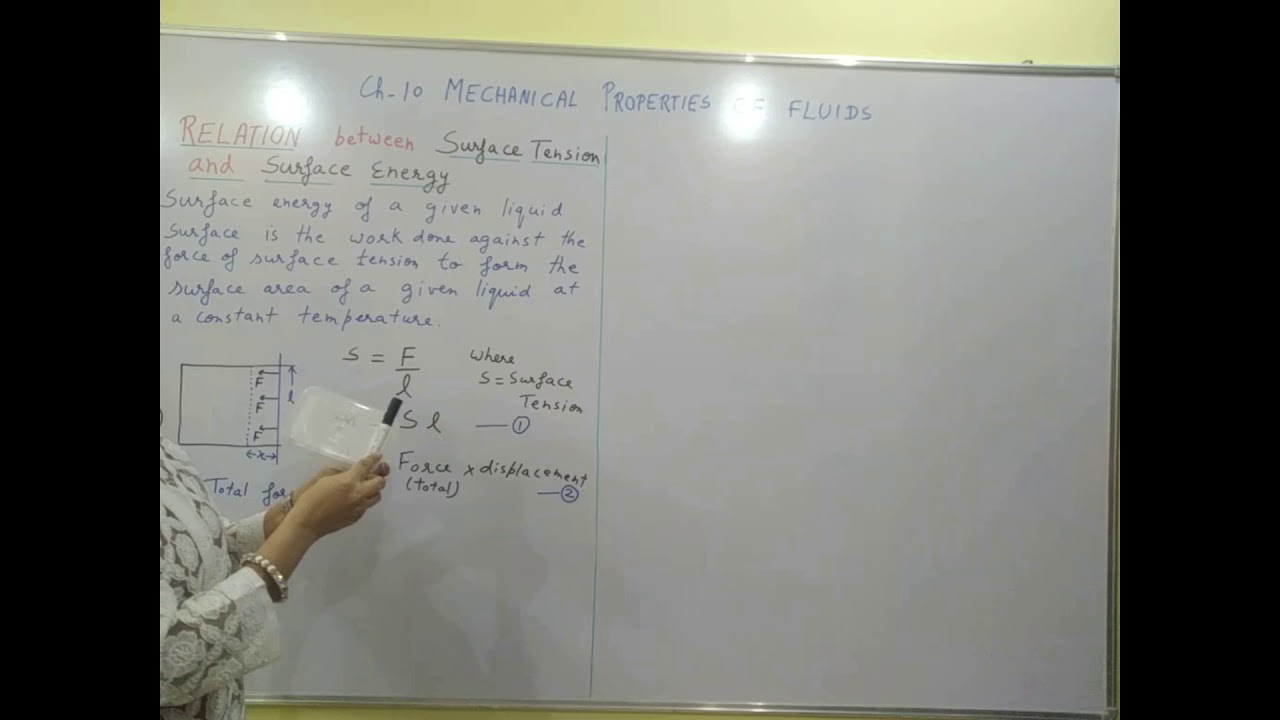 Ch-10 MECHANICAL PROPERTIES OF FLUIDS
RELATION between Surface Tension
and Surface Energy
Surface energy of a given liquid
surface is the work done against the
force of surface tension to form the
surface area of a given liquid at
a constant temperature.
S = F
l
where
S = Surface
Tension
F
F
F
l
x
S l — ①
Force x displacement
(total) — ②
Total